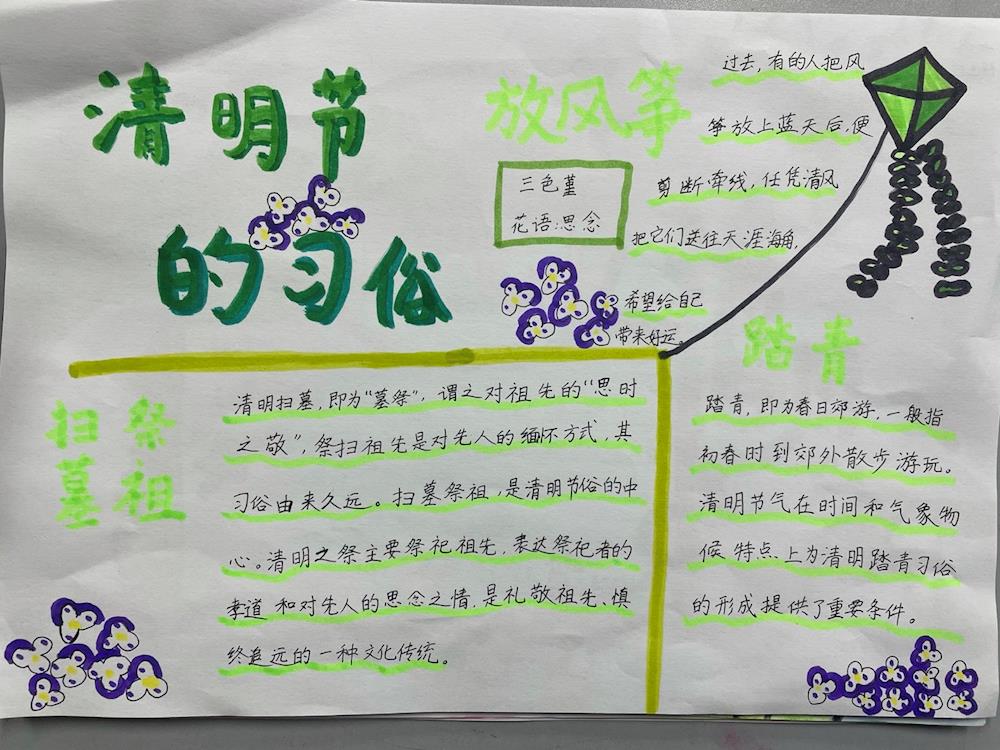 清明节
的习俗
放风筝
过去，有的人把风
筝放上蓝天后，便
剪断牵线，任凭清风
把它们送往天涯海角，
希望给自己
带来好运。
三色堇
花语：思念
扫墓 祭祖
清明扫墓，即为“墓祭”，谓之对祖先的“思时
之敬”，祭扫祖先是对先人的缅怀方式，其
习俗由来久远。扫墓祭祖，是清明节俗的中
心。清明之祭主要祭祀祖先，表达祭祀者的
孝道和对先人的思念之情，是礼敬祖先、慎
终追远的一种文化传统。
踏青
踏青，即为春日郊游，一般指
初春时到郊外散步游玩。
清明节气在时间和气象物
候特点上为清明踏青习俗
的形成提供了重要条件。